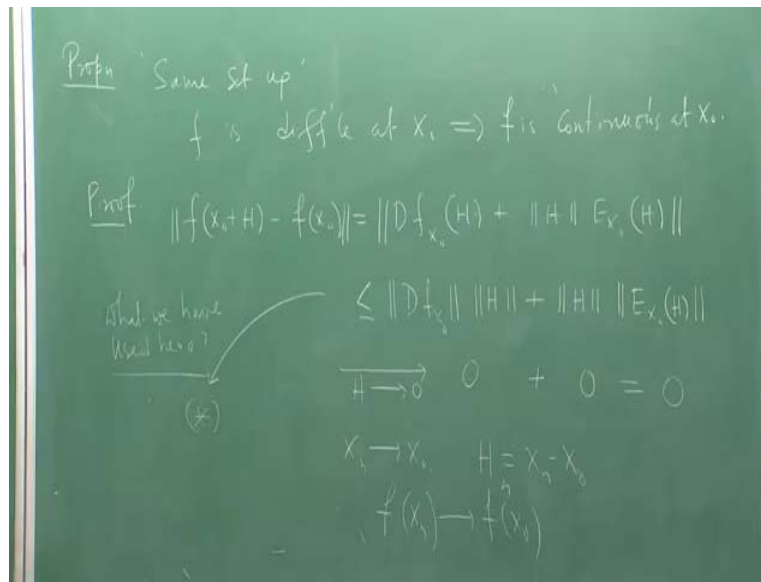 Propn 'Same set up'
f is diff'le at X₀ ⟹ f is continuous at X₀.
Proof ||f(X₀+H) - f(X₀)|| = ||Df_{X₀}(H) + ||H|| E_{X₀}(H)||
≤ ||Df_{X₀}|| ||H|| + ||H|| ||E_{X₀}(H)||
What we have
used here?
(*)
H → 0 0 + 0 = 0
Xₙ → X₀ Hₙ = Xₙ - X₀
f(Xₙ) → f(X₀)